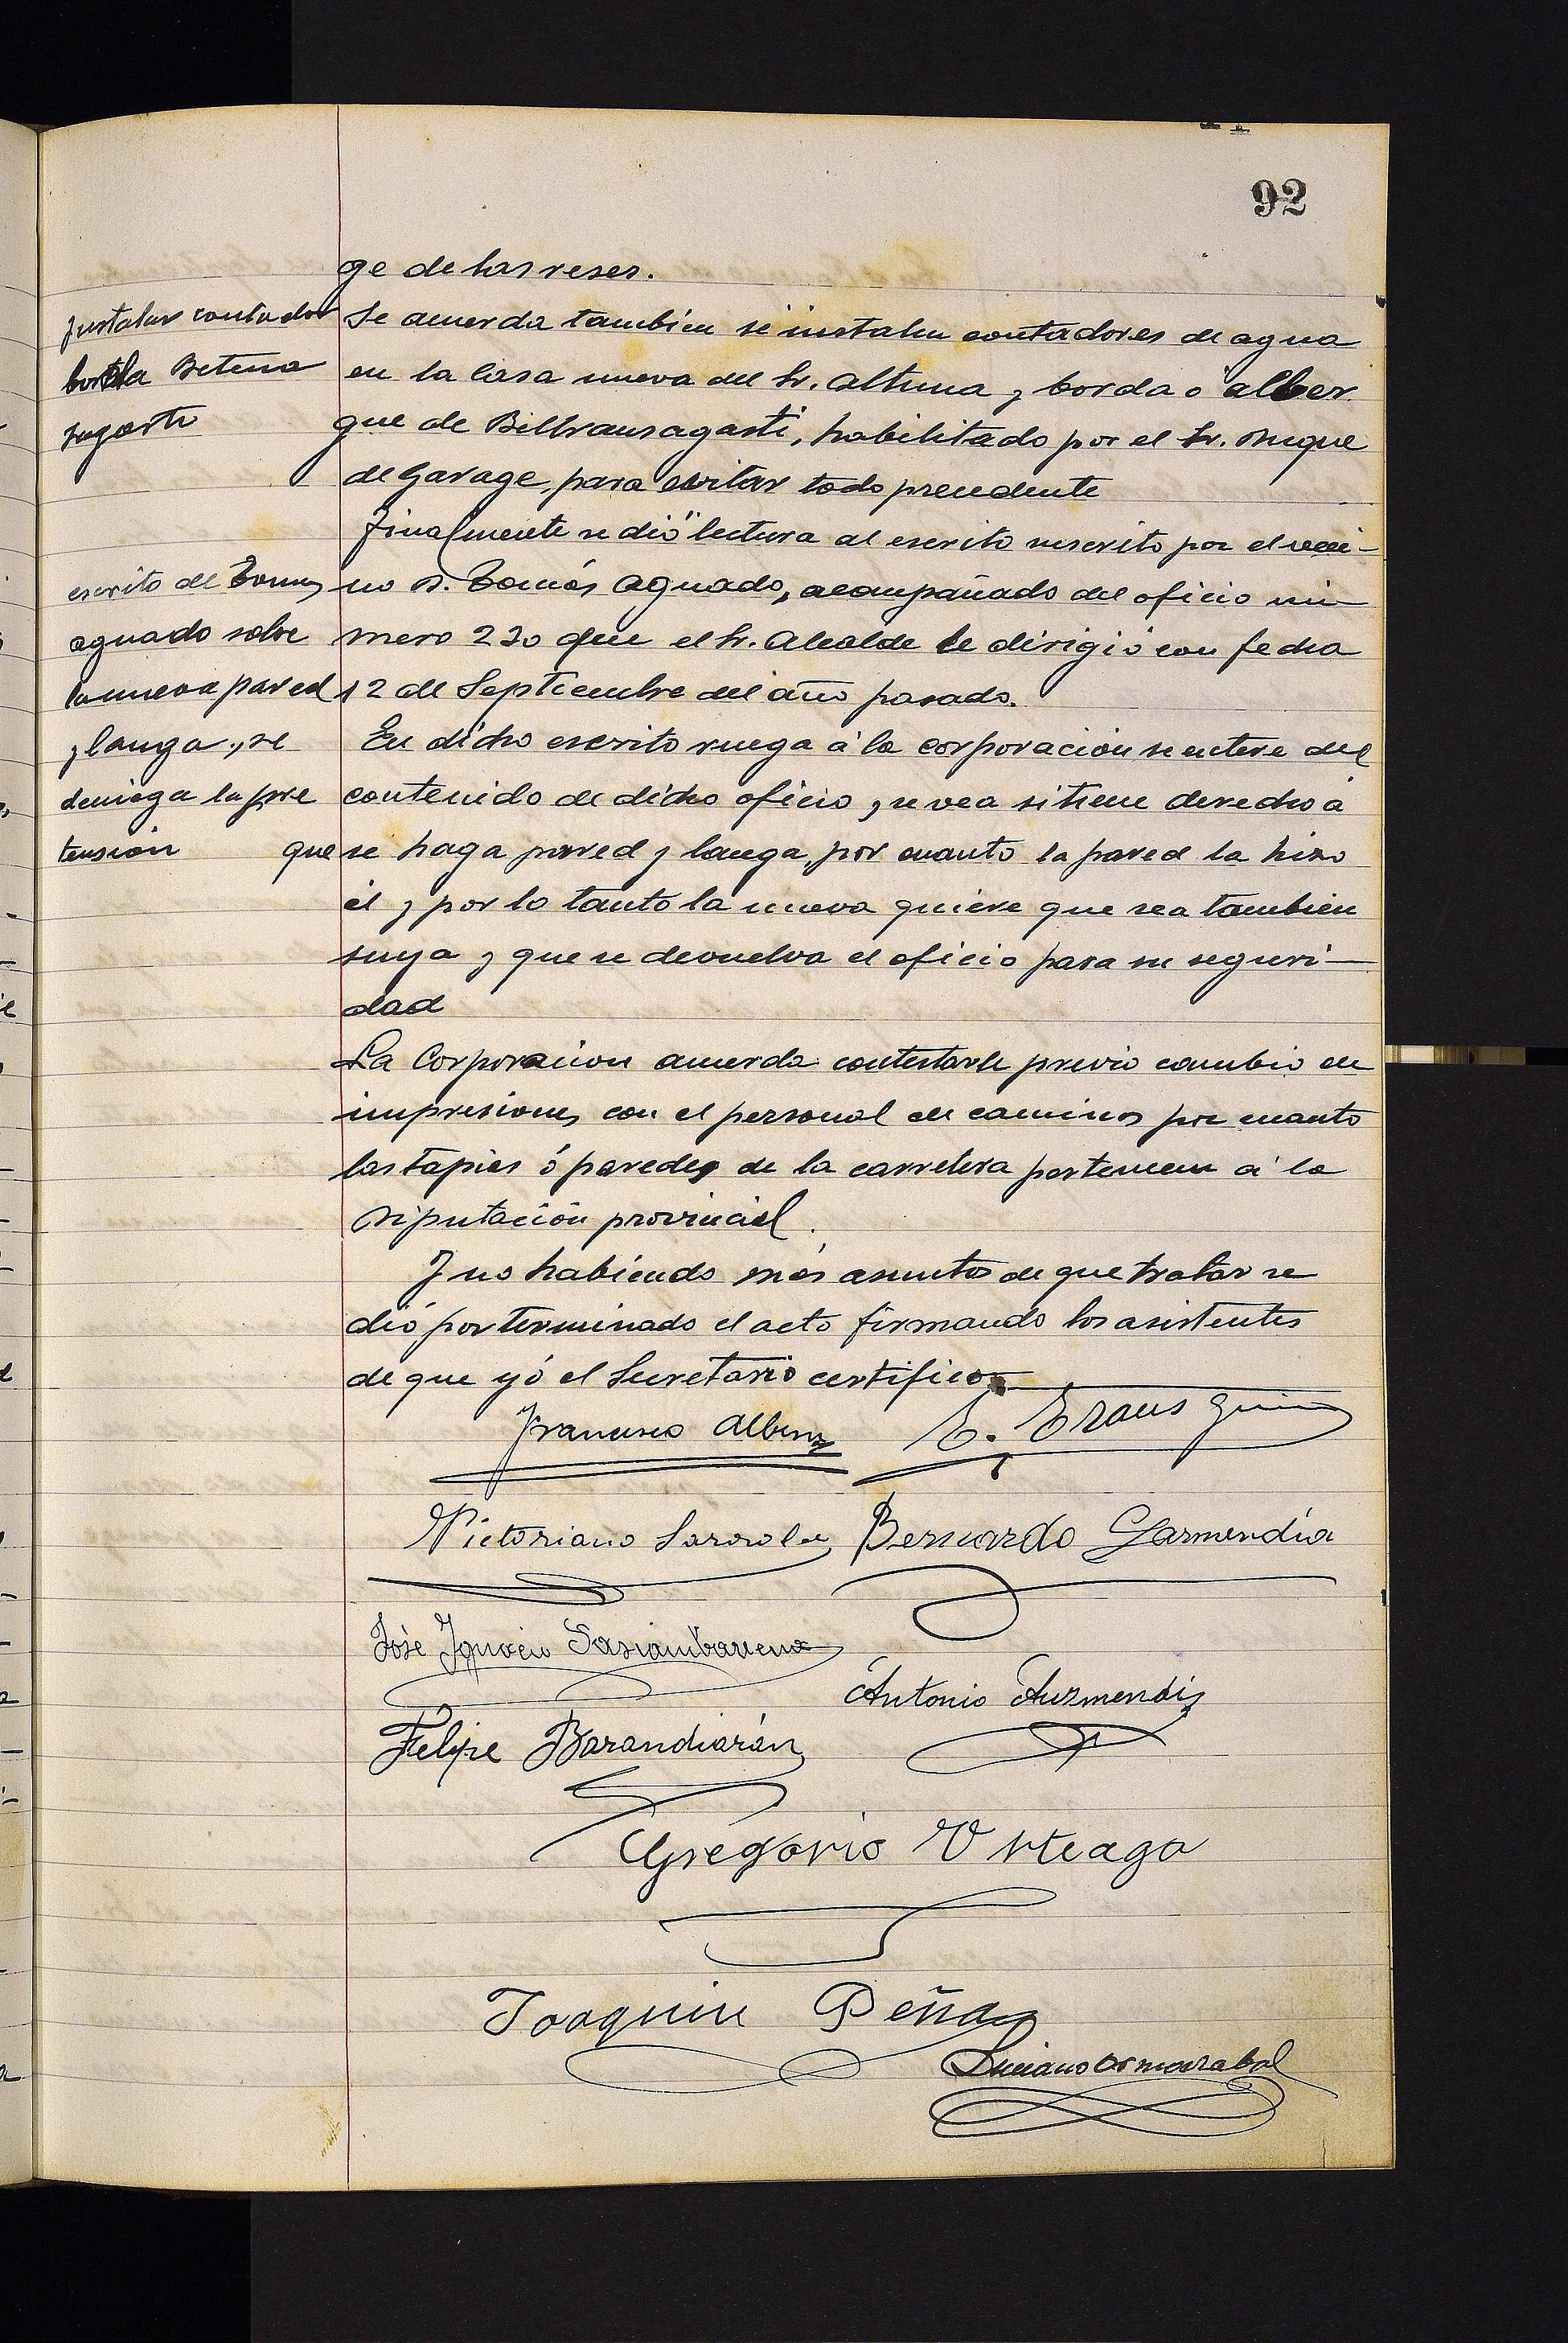 92
ge de las reses.
Instalar contador
borda Betena
sagarti
Se acuerda tambien se instalen contadores de agua
en la casa nueva del Sr. Altuna y borda o alber
gue de Beltransagasti, habilitado por el Sr. Duque
de Garage, para evitar todo precedente
Finalmente se dió lectura al escrito suscrito por el veci-
no D. Tomás Aguado, acompañado del oficio nú-
mero 230 que el Sr. Alcalde le dirigió con fecha
12 de Septiembre del año pasado.
escrito de Tomas
aguado sobre
la nueva pared
y langa, se
deniega la pre
tension
En dicho escrito ruega á la corporación se entere del
contenido de dicho oficio y se vea si tiene derecho á
que se haga pared y langa, por cuanto la pared la hizo
él y por lo tanto la nueva quiere que sea tambien
suya y que se devuelva el oficio para su seguri-
dad
La Corporacion acuerda contestarle previo cambio de
impresiones con el personal de caminos por cuanto
las tapias ó paredes de la carretera pertenecen á la
Diputación provincial.
Y no habiendo más asuntos de que tratar se
dió por terminado el acto firmando los asistentes
de que yó el Secretario certifico
Francisco Albisu
E. Erausquin
Victoriano Sarasola
Bernardo Garmendia
José Ignacio Sasiambarrena
Antonio Auzmendi
Felipe Barandiarán
Gregorio Urteaga
Joaquin Peña
Luciano Ormazabal